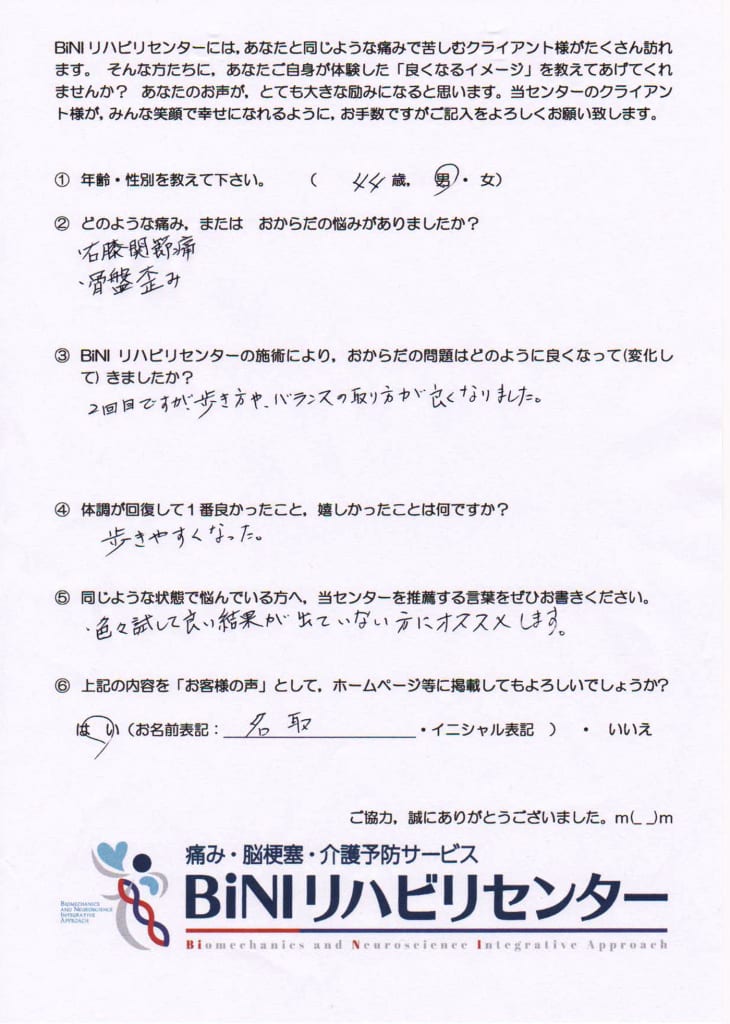 BiNIリハビリセンターには，あなたと同じような痛みで苦しむクライアント様がたくさん訪れ
ます。 そんな方たちに，あなたご自身が体験した「良くなるイメージ」を教えてあげてくれ
ませんか？ あなたのお声が，とても大きな励みになると思います。当センターのクライアン
ト様が，みんな笑顔で幸せになれるように，お手数ですがご記入をよろしくお願い致します。
① 年齢・性別を教えて下さい。 （ 44 歳， 男 ・ 女）
② どのような痛み，または おからだの悩みがありましたか？
・右膝関節痛
・骨盤歪み
③ BiNI リハビリセンターの施術により，おからだの問題はどのように良くなって（変化し
て）きましたか？
2回目ですが、歩き方や、バランスの取り方が良くなりました。
④ 体調が回復して１番良かったこと，嬉しかったことは何ですか？
歩きやすくなった。
⑤ 同じような状態で悩んでいる方へ，当センターを推薦する言葉をぜひお書きください。
・色々試して良い結果が出ていない方にオススメします。
⑥ 上記の内容を「お客様の声」として，ホームページ等に掲載してもよろしいでしょうか？
はい（お名前表記：名取 ・イニシャル表記 ） ・ いいえ
ご協力，誠にありがとうございました。m(_ _)m
痛み・脳梗塞・介護予防サービス
BiNIリハビリセンター
BIOMECHANICS
AND NEUROSCIENCE
INTEGRATIVE
APPROACH
Biomechanics and Neuroscience Integrative Approach